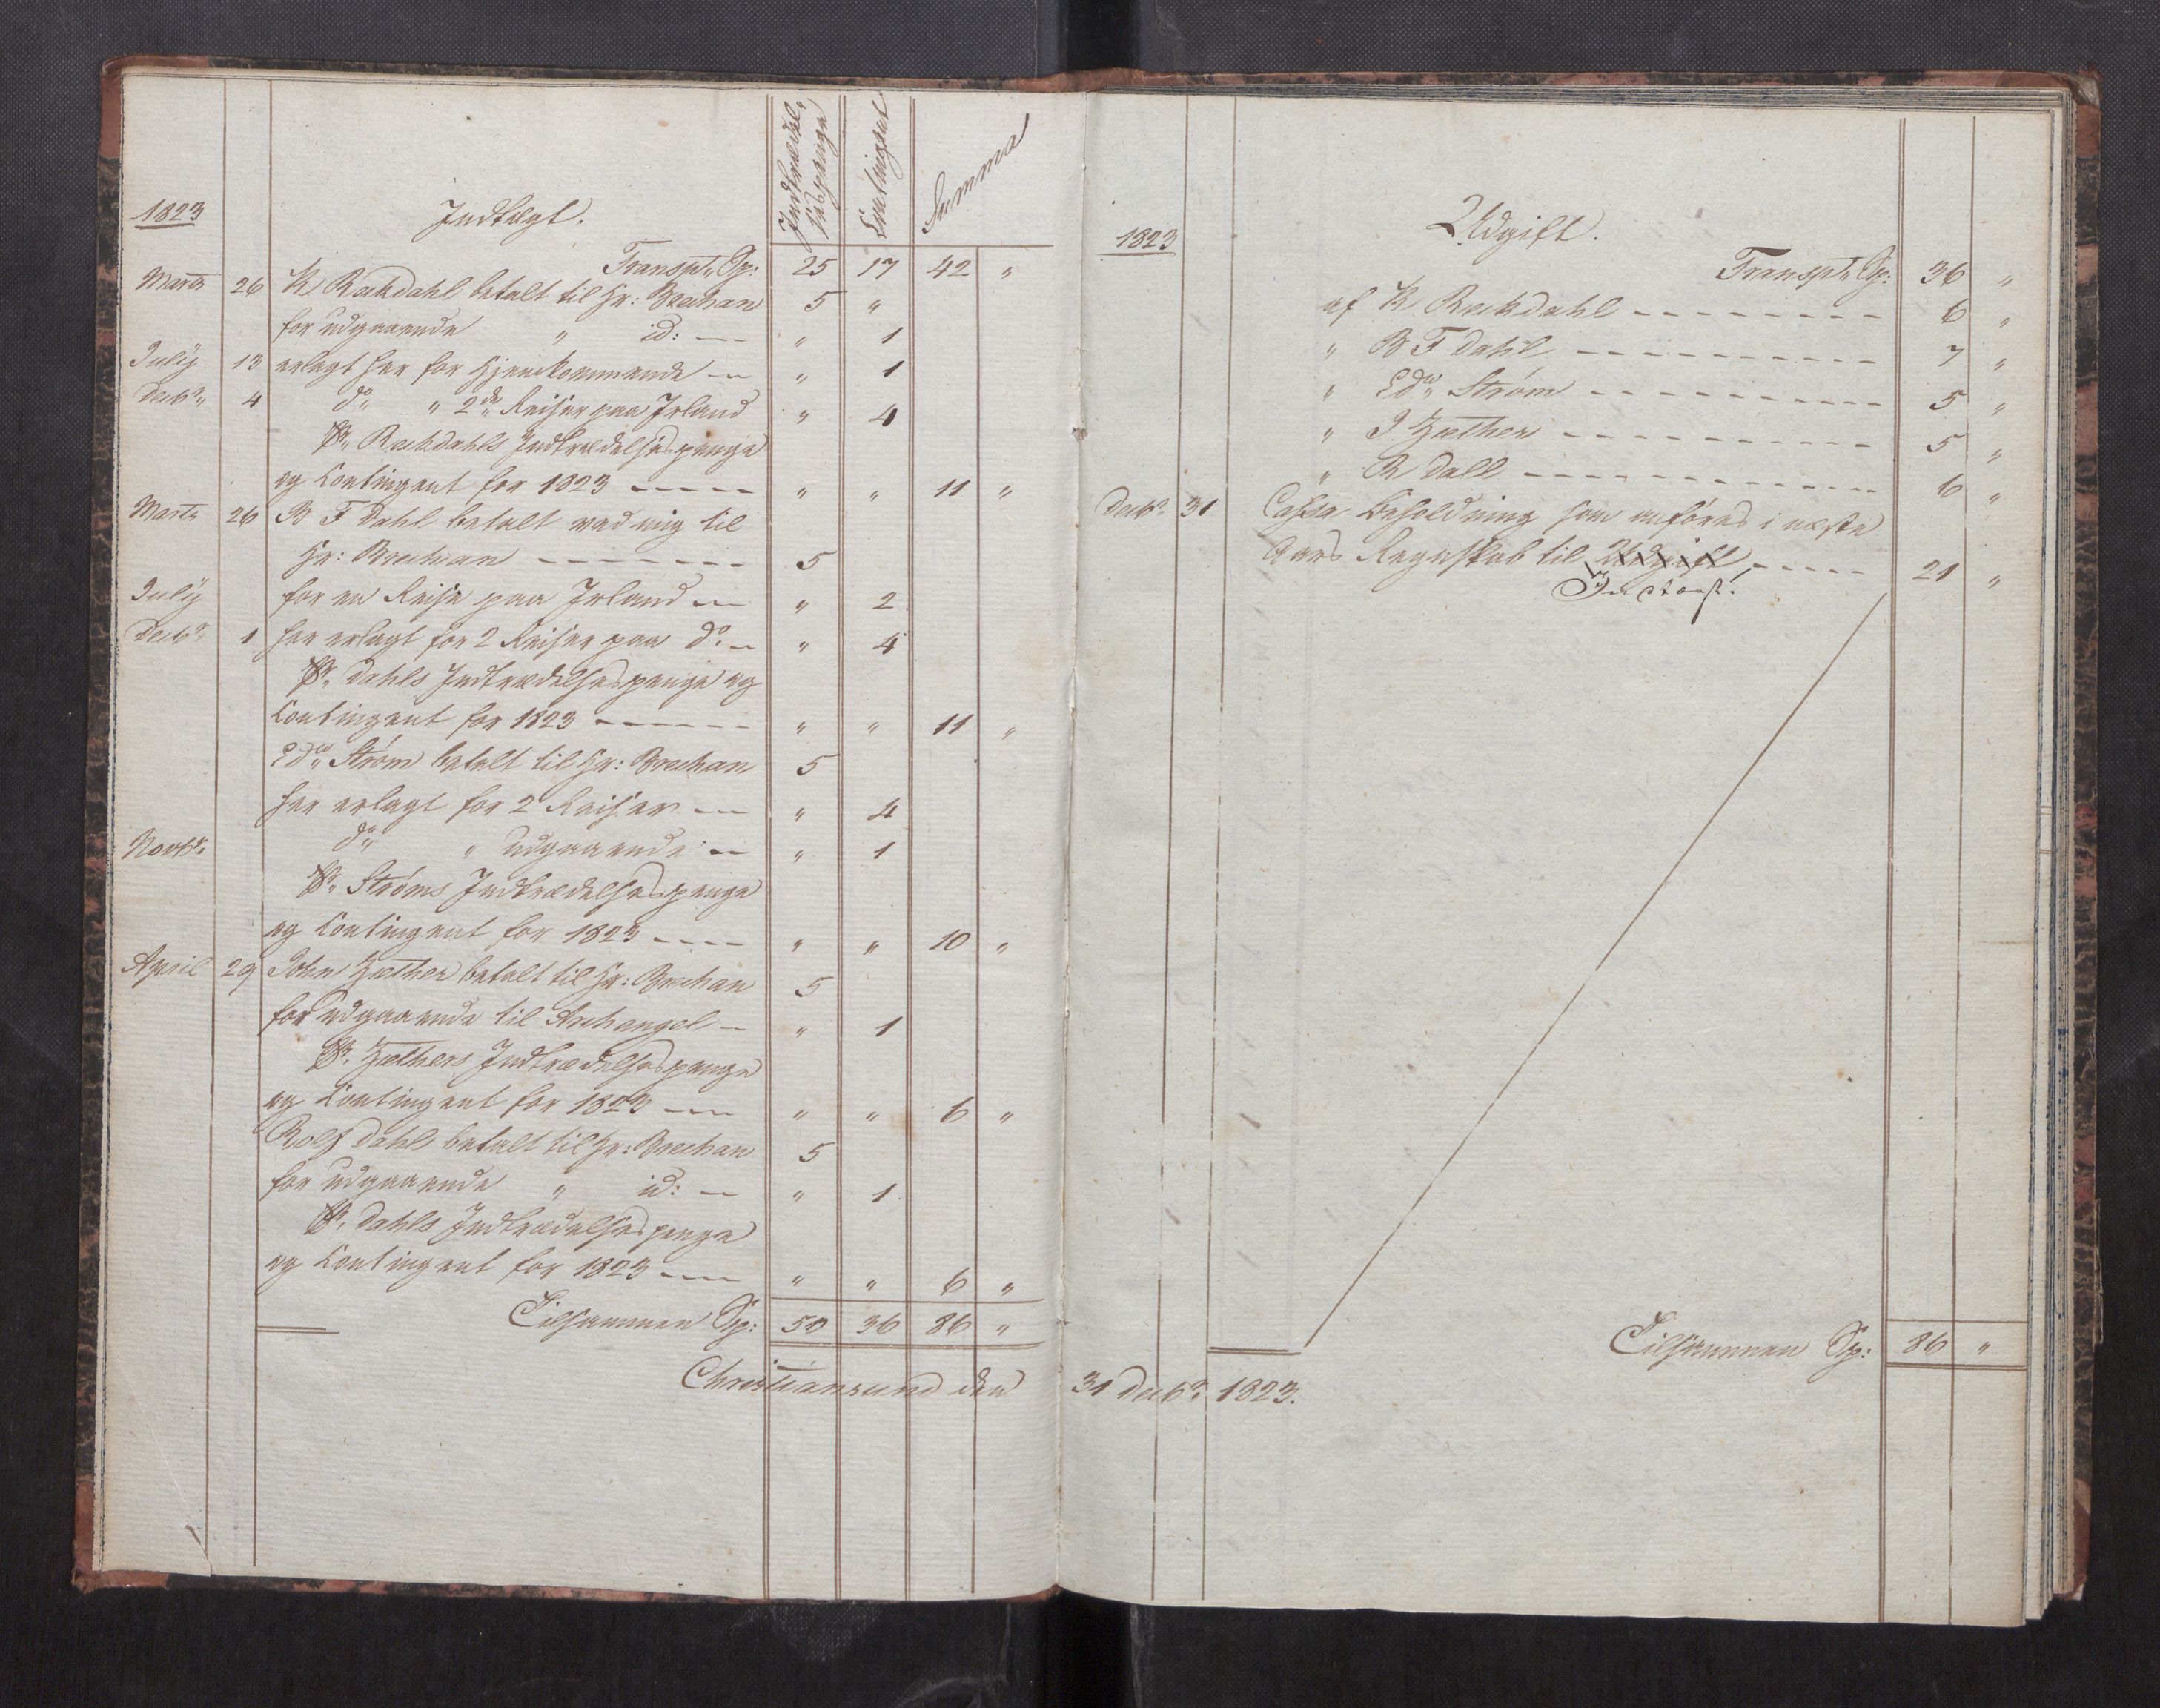 Indtrædel-
sespenge
Contingent
Summa
1823
Indtægt.
Transpt„ Sp: 25 17 42 „
Marts 26 K Reckdahl betalt til Hr: Brechan 5 „
for udgaaende „ id: — „ 1
July 13 erlagt her for hjemkommende — „ 1
Decbr„ 4 do„ „ 2de„ Reiser paa Irland „ 4
Reckdahls Indtrædelsespenge
og Contingent for 1823 ---- „ „ 11 „
Marts 26 B F Dahl betalt ved mig til
Hr: Brechan ------- 5
July for en Reise paa Irland — „ 2
Decbr. 1 her erlagt for 2 Reiser paa do. — „ 4
Dahls Indtrædelsespenge og
Contingent for 1823 ------ „ „ 11 „
Edw„ Strøm betalt til Hr: Brechan 5
her erlagt for 2 Reiser — „ 4
Novbr. do„ „ udgaaende — „ 1
Strøms Indtrædelsespenge
og Contingent for 1823 ---- „ „ 10 „
April 29 John Hæther betalt til Hr: Brechan 5
for udgaaende til Archangel — „ 1
Hæthers Indtrædelsespenge
og Contingent for 1823 --- „ „ 6 „
Rolf Dahl betalt til Hr: Brechan 5
for udgaaende „ id: — „ 1
Dahls Indtrædelsespenge
og Contingent for 1823 --- „ „ 6 „
Tilsammen Sp: 50 36 86 „
Christiansund den
1823
Udgift.
Transpt„ Sp: 36 „
af K Reckdahl -------- 6 „
„ B F Dahl --------- 7 „
„ Edw„ Strøm --------- 5 „
„ J. Hæther --------- 5 „
„ R Dall ---------- 6 „
Decbr. 31 Cassa Beholdning som anføres i næste
Aars Regnskab til Udgift ----- 21 „
Indtægt.
Tilsammen Sp: 86 „
31 Decbr. 1823.